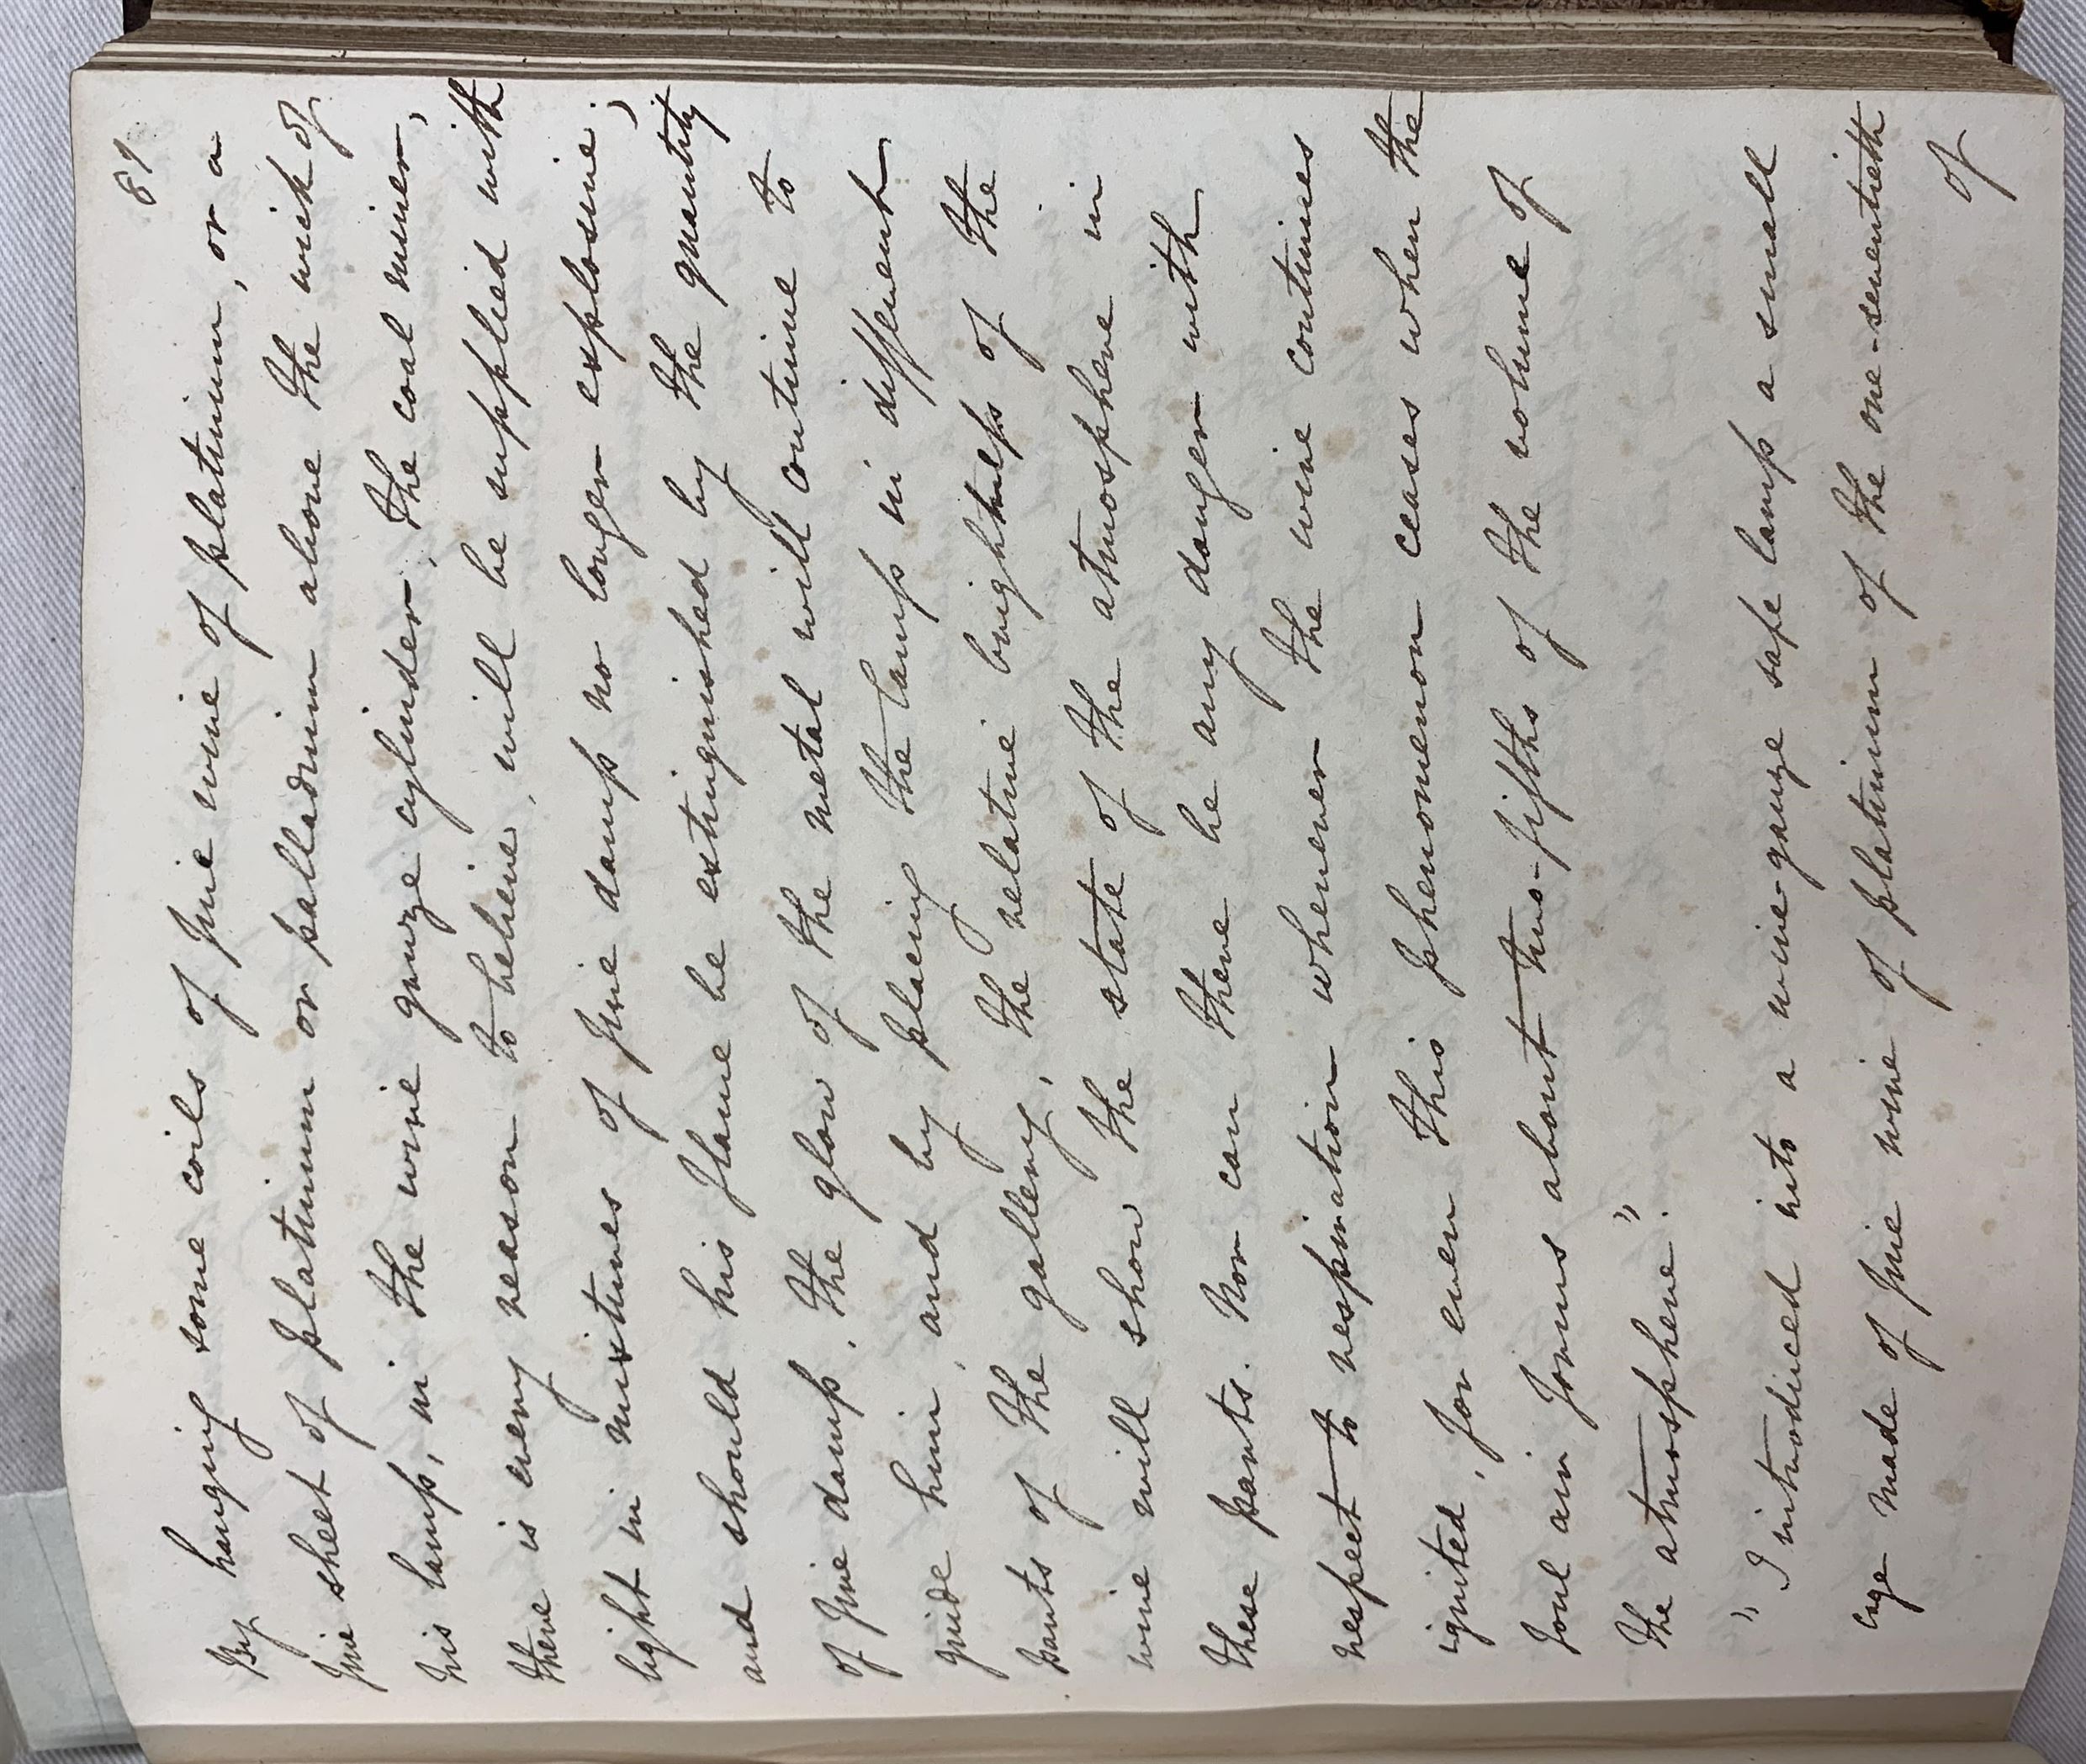 89
By hanging some coils of fine wire of platinum, or a
fine sheet of platinum or palladium above the wick of
his lamp, in the wire gauze cylinder, the coal miner,
there is every reason to believe, will be supplied with
light in mixtures of fire damp no longer explosive;
and should his flame be extinguished by the quantity
of fire damp, the glow of the metal will continue to
guide him, and by placing the lamp in different
parts of the gallery, the relative brightness of the
wire will show the state of the atmosphere in
these parts. Nor can there be any danger with
respect to respiration whenever the wire continues
ignited, for even this phenomenon ceases when the
foul air forms about two-fifths of the volume of
the atmosphere."
"I introduced into a wire-gauze safe lamp a small
cage made of fine wire of platinum of the one-seventieth
of